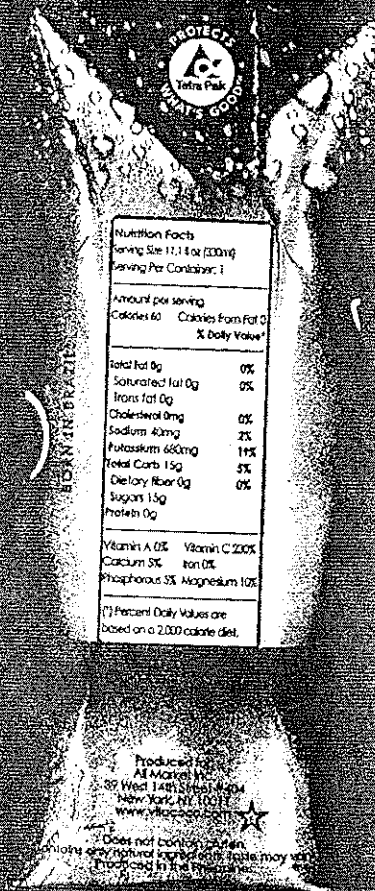 PROTECTS
Tetra Pak
WHAT'S GOOD
BORN IN BRAZIL
Nutrition Facts
Serving Size 11.1 fl oz (330ml)
Serving Per Container: 1
Amount per serving
Calories 60 Calories from Fat 0
% Daily Value*
Total Fat 0g 0%
Saturated fat 0g 0%
Trans fat 0g
Cholesterol 0mg 0%
Sodium 40mg 2%
Potassium 680mg 19%
Total Carb 15g 5%
Dietary fiber 0g 0%
Sugars 15g
Protein 0g
Vitamin A 0% Vitamin C 200%
Calcium 5% Iron 0%
Phosphorous 5% Magnesium 10%
(*) Percent Daily Values are
based on a 2,000 calorie diet.
Produced for
All Market Inc.
39 West 14th Street #404
New York, NY 10011
www.vitacoco.com
Does not contain gluten.
Contains only natural ingredients. Taste may vary.
Produced in the Philippines